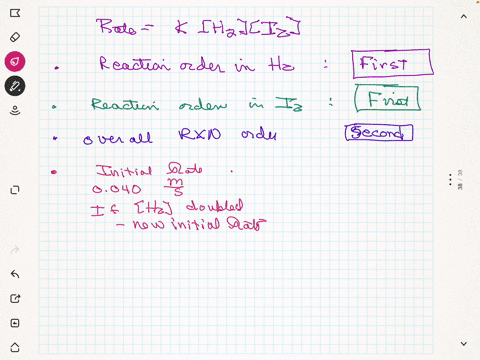 Rate = K [H2][I2]
• Reaction order in H2 : First
• Reaction order in I2 : First
• overall RXN order Second
• Initial Rate
0.040 M/S
If [H2] doubled
- new initial Rate